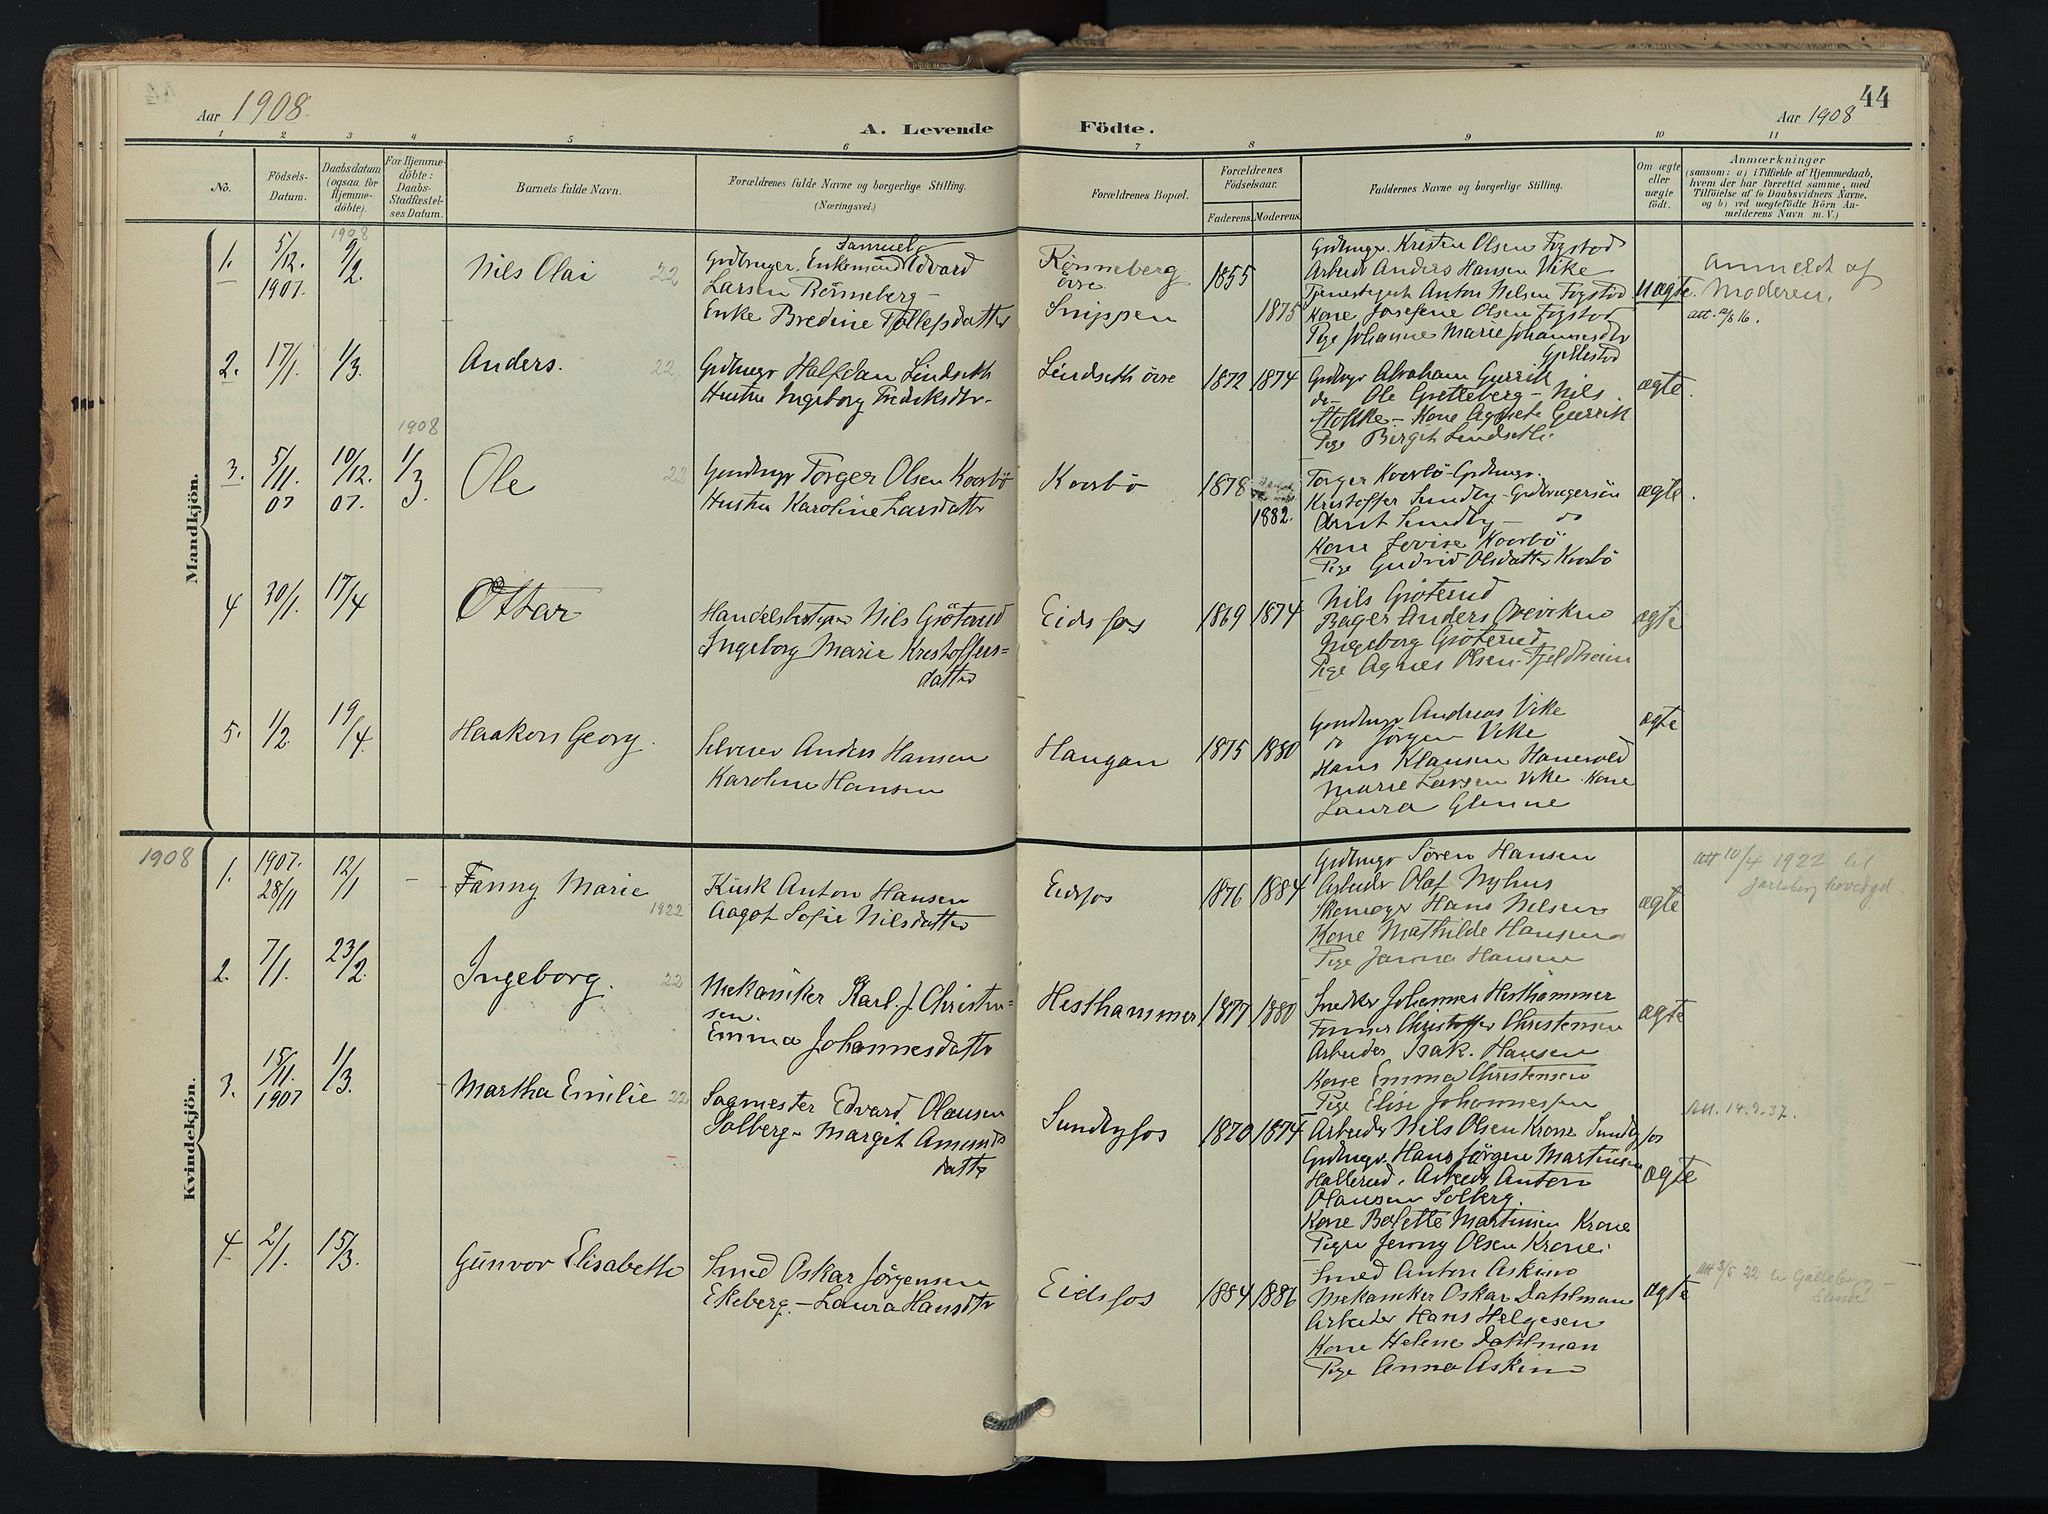 44
Aar 1908.
A. Levende Födte.
Aar 1908
1 2 3 4 5 6 7 8 9 10 11
No.
Födsels-
Datum.
Daabsdatum
(ogsaa for
Hjemme-
döbte).
For Hjemme-
döbte:
Daabs-
Stadfæstel-
ses Datum.
Barnets fulde Navn.
Forældrenes fulde Navne og borgerlige Stilling.
(Næringsvei.)
Forældrenes Bopæl.
Forældrenes
Födselsaar.
Faderens. Moderens.
Faddernes Navne og borgerlige Stilling.
Om ægte
eller
uægte
födt.
Anmærkninger
(saasom: a) i Tilfælde af Hjemmedaab,
hvem der har forrettet samme, med
Tilföielse af to Daabsvidners Navne,
og b) ved uægtefödte Börn An-
melderens Navn m. V.)
Mandkjön.
1.
5/12.
1907.
1908
9/2.
Nils Olai 22
Samuel
Grdbruger, Enkemand Edvard
Larsen Rönneberg –
Enke Bredine Tollefsdatter
Rönneberg
övre
Snippen
1855
1875
Grdbruger. Kristen Olsen Fogstad
Arbeider Anders Hansen Vike
Anton Nilsen Fogstad
Kone Josefine Olsen Fogstad
Pige Johanne Marie Johannesdtr
Gjellestad
uægte.
Anmeldt af
Moderen.
Att. 12/6 16.
2.
17/1.
1/3.
Anders. 22
Grdbrugr Halfdan Lindseth
Hustru Ingeborg Fredriksdtr.
Lindseth övre
1872 1874
Grdbrgr Abraham Gurrik
do– Ole Gretteberg – Nils
Stokke – Kone Agnete Gurrik
Pige Birgit Lindseth.
ægte.
3.
5/11.
07
10/12.
07.
1908
1/3.
Ole 22
Gaardbrugr Torger Olsen Kovsbö
Hustru Karoline Larsdatter
Kovsbö
1878
1882.
Torger Kovsbö – Grdbrugr.
Kristoffer Sundby – Grdbrugersön
Arnt Sundby – do
Kone Kovsbö
Pige Gudrid Olsdatter Kovsbö
ægte.
4
30/1.
17/4
Ottar
Handelsbestyrer Nils Gröterud
Ingeborg Marie Kristoffers=
datter
Eidsfos
1869 1874
Nils Gröterud
Bager Anders
Ingeborg Gröterud
Pige Agnes Olsen Fjeldheim
ægte
5.
1/2.
19/4
Haakon Georg.
Anders Hansen
Karoline Hansen
Haugan
1875 1880
Gaardbrugr Andreas Vike
do Jörgen Vike
Hans Klausen Hanevold
Marie Larsen Vike. Kone
Laura Glenne
ægte
1908
Kvindekjön.
1.
1907.
28/11
12/1
–
Fanny Marie
1922
Kusk Anton Hansen
Aagot Sofie Nilsdatter
Eidsfos
1876 1884
Grdbrugr Sören Hansen
Arbeider Olaf Nyhus
Skomager Hans Nilsen
Kone Mathilde Hansen
Pige Hansen
ægte
Att 10/4 1922 til
Jarlsberg hovedgd.
2.
7/1.
23/2.
Ingeborg. 22
Mekaniker Karl J. Christen=
sen.
Emma Johannesdatter
Hesthammer
1877 1880
Snedker Johannes Hesthammer
Former Christoffer Christensen
Arbeider Isak. Hansen
Kone Emma Christensen
Pige Elise Johannessen
ægte
3.
15/11.
1907
1/3.
Martha Emilie 22
Sagmester Edvard Olausen
Solberg – Margit Amunds
datter
Sundbyfos
1870 1874
Arbeider Nils Olsen Krone Sundbyfos
Grdbrugr. Hans Jörgen Martinsen
Hallerud. Arbeider Anton
Olausen Solberg.
Kone Bolette Martinsen Krone
Pige Jenny Olsen Krone.
ægte
Att. 14.9.37.
4.
2/1.
15/3.
Gunvor Elisabeth
Smed Oskar Jörgensen
Ekeberg. – Laura Hansdtr
Eidsfos
1884 1886
Smed Anton Askim
Mekaniker Oskar Dahlman
Arbeider Hans Helgesen
Kone Helene Dahlman
Pige Anna Askim
ægte
Att 3/5 22